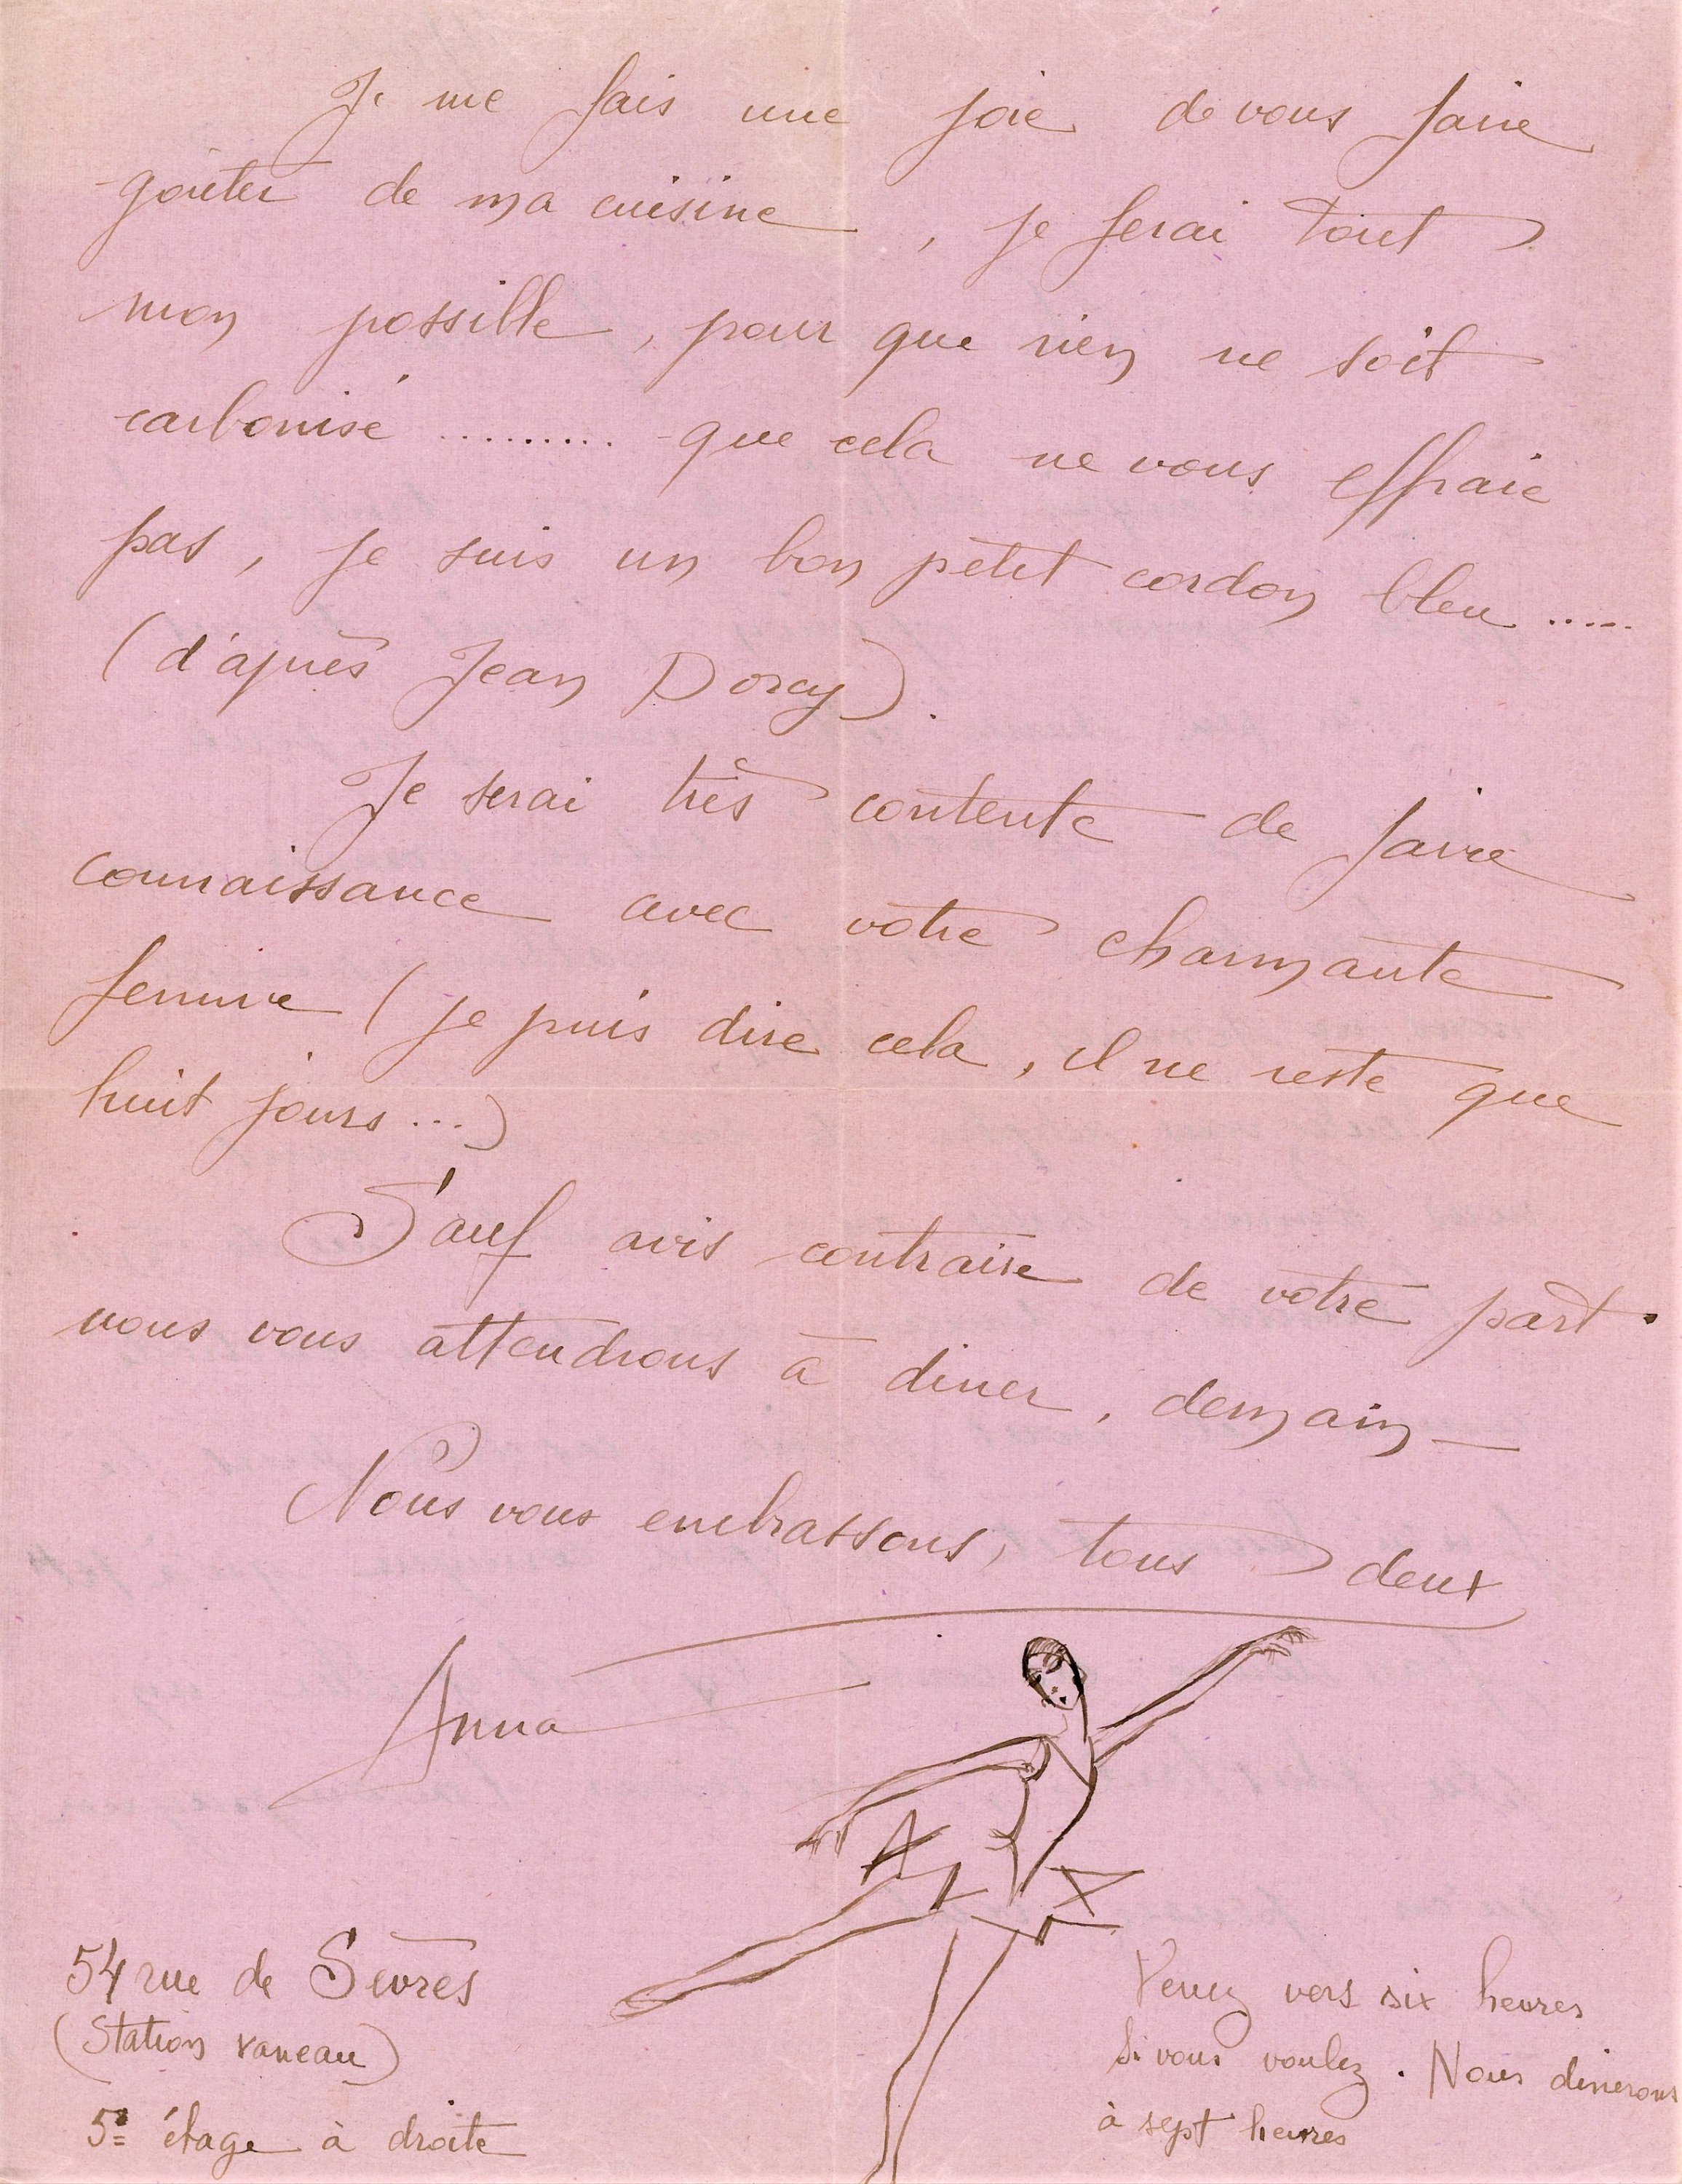 Je me fais une joie de vous faire
goûter de ma cuisine, je ferai tout
mon possible, pour que rien ne soit
carbonisé ......... que cela ne vous effraie
pas, je suis un bon petit cordon bleu .....
(d'après Jean Dorcy).
Je serai très contente de faire
connaissance avec votre charmante
femme (je puis dire cela, il ne reste que
huit jours ...)
Sauf avis contraire de votre part.
nous vous attendrons à diner, demain —
Nous vous embrassons, tous deux
Anna
54 rue de Sèvres
(Station vaneau)
5e étage à droite
Venez vers six heures
si vous voulez. Nous dinerons
à sept heures